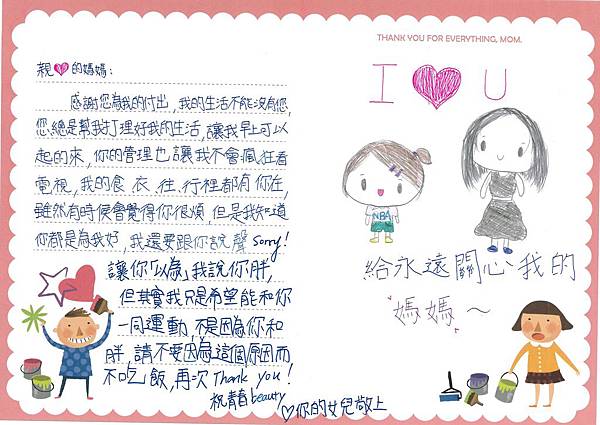 親♥的媽媽：
感謝您為我的付出，我的生活不能沒有您，
您總是幫我打理好我的生活，讓我早上可以
起的來，你的管理也讓我不會瘋狂看
電視，我的食、衣、住、行裡都有你在，
雖然有時侯會覺得你很煩，但是我知道
你都是為我好，我還要跟你說聲sorry!
讓你「以為」我說你胖，
但其實我只是希望能和你
一同運動，不是因為你和
胖，請不要因為這個原因而
不吃飯，再次Thank you!
祝青春beauty
♡你的女兒敬上
THANK YOU FOR EVERYTHING, MOM.
I ♥ U
NBA
給永遠關心我的
媽媽～